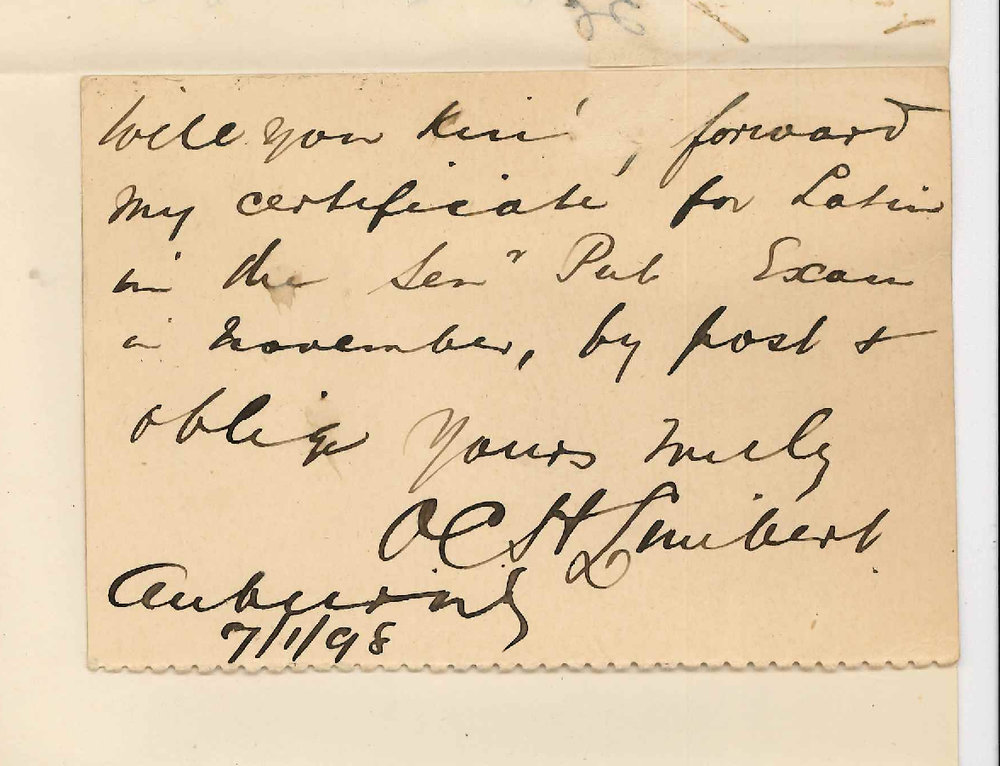 Will you kin ' , forward
my certificate for Latin
in the Senʳ Pub Exam
in November, by post &
oblige Yours truly
O C H Lambert
Auburn
7/1/98